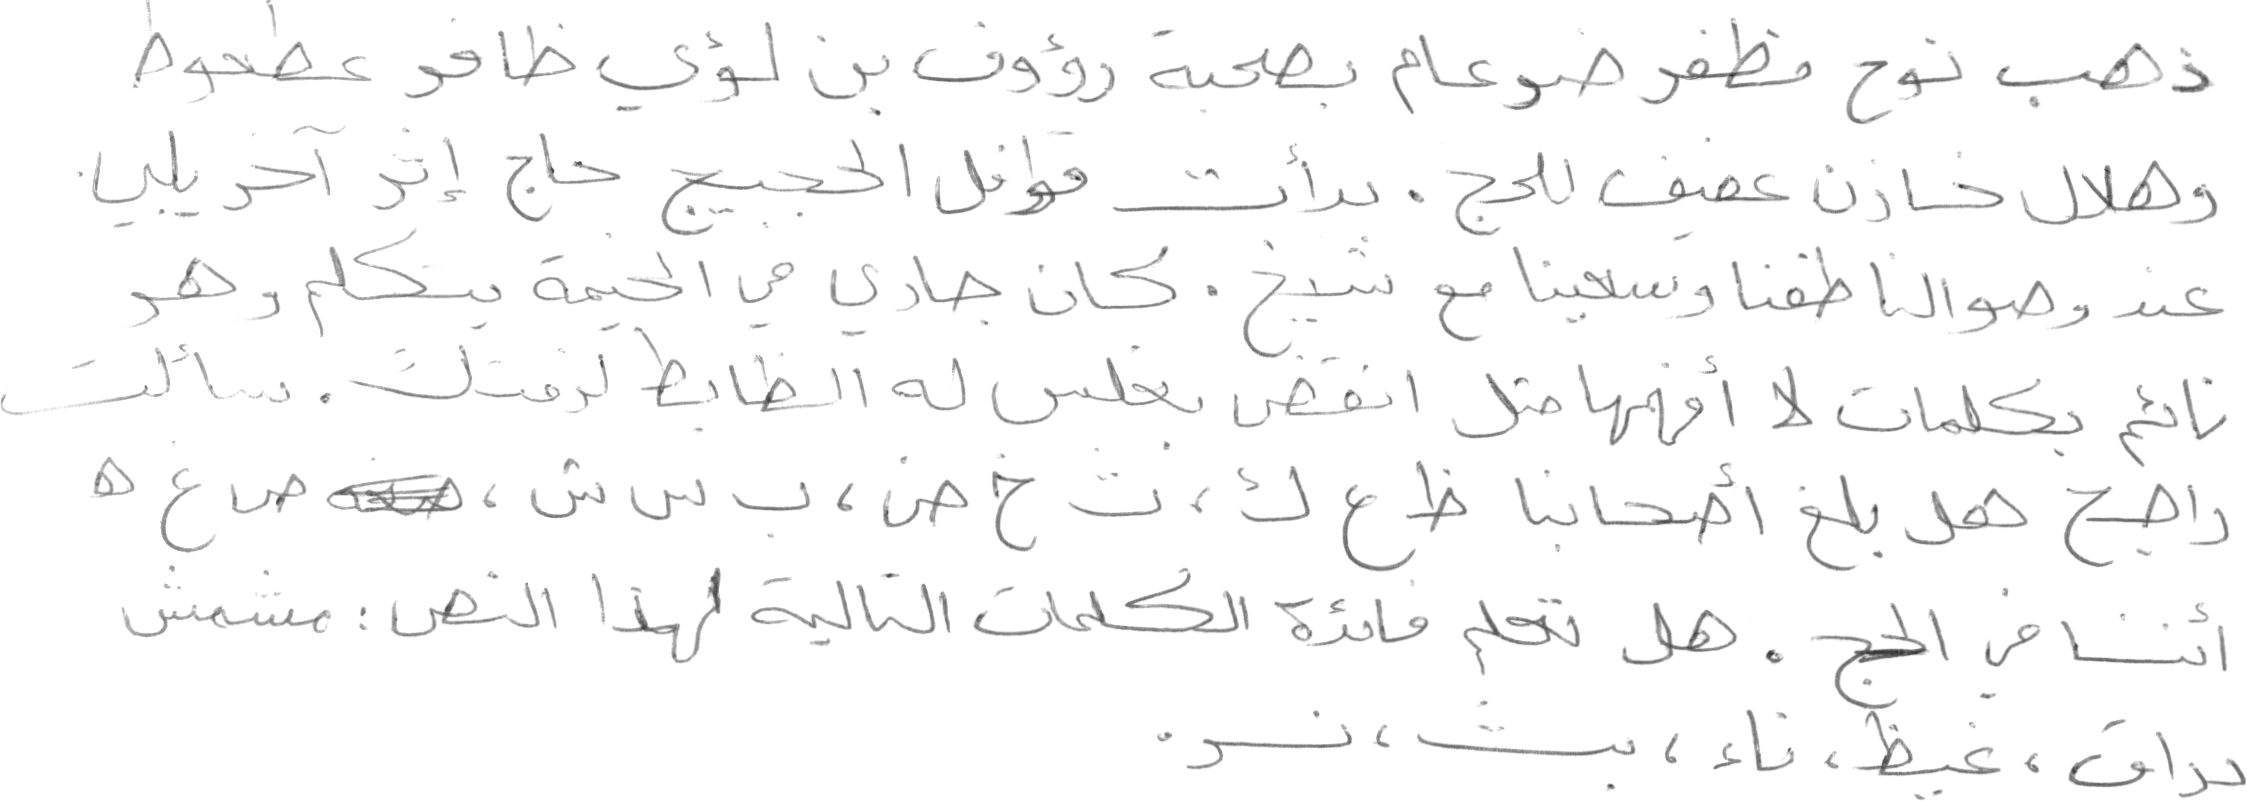 ذهب نوح مظفر ضرغام بصحبة رؤوف بن لؤي ظافر عطعوط
وهلال خازن عفيف للحج . بدأت قوافل الحجيج حاج إثر آخر يلبي .
عند وصولنا طفنا وسعينا مع شيخ . كان جاري في الخيمة يتكلم وهو
نائم بكلمات لا أفهمها مثل انقض بغلس له الظابط لزقتك . سألت
راجح هل بلغ أصحابنا ظ ع ك ، ث خ ض ، ب س ش ، ص غ ه
أننا في الحج . هل تعلم فائدة الكلمات التالية لهذا النص : مشمش
براق ، غيظ ، ناء ، بث ، نسر .